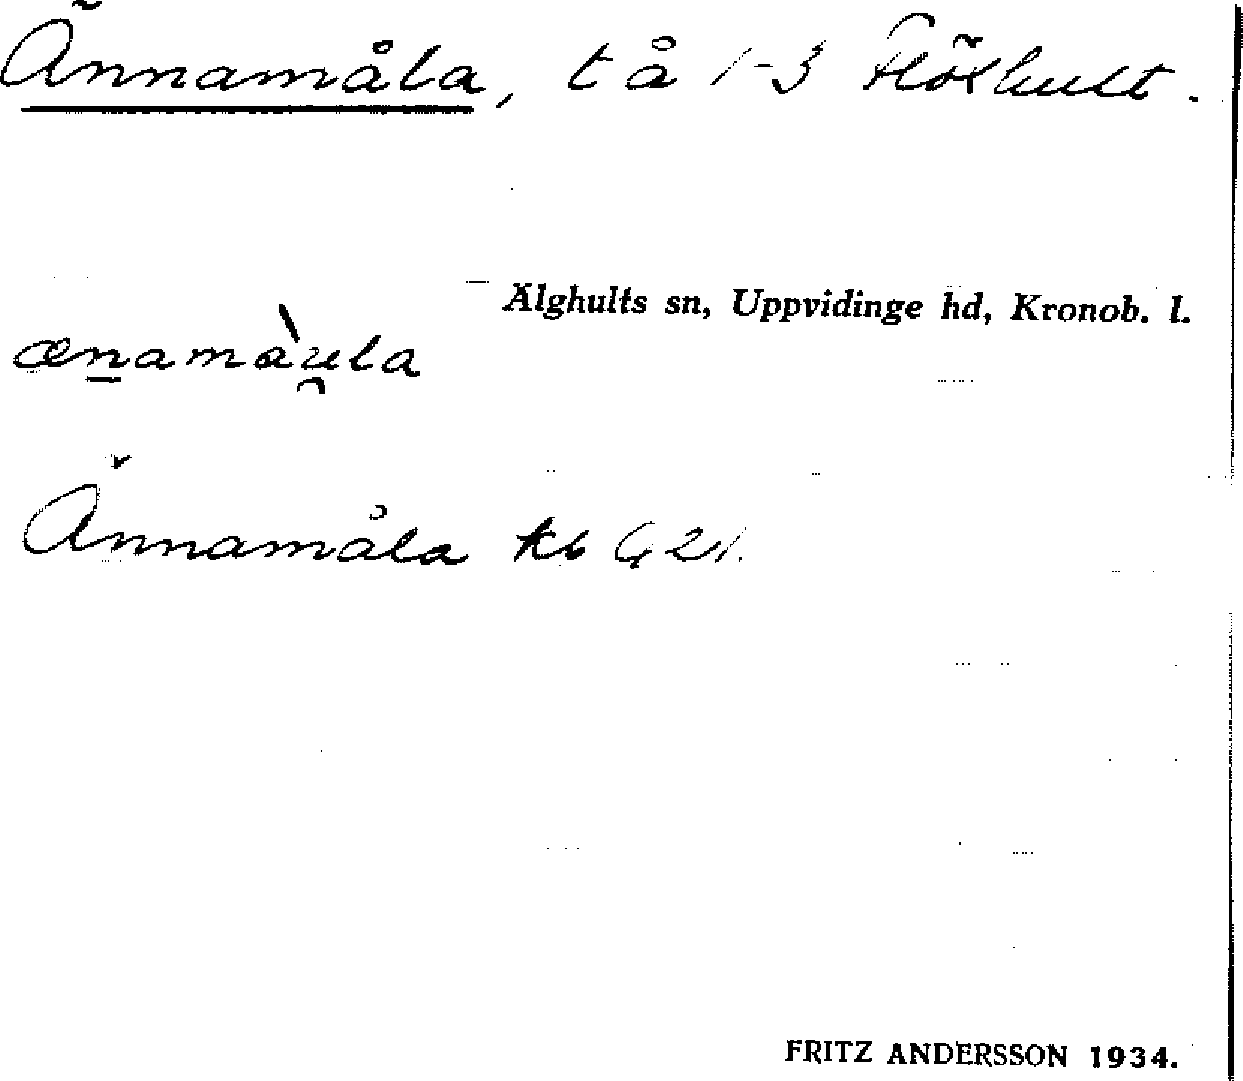 Ännamåla, t å 1-3 Flökhult.
Älghults sn, Uppvidinge hd, Kronob. l.
ænamàu̯la
Ännamåla kb G21.
FRITZ ANDERSSON 1934.